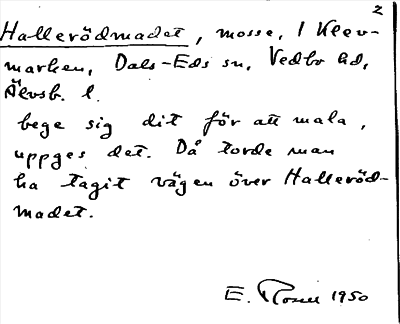 2
Hallerödmadet, mosse, I Klev-
marken, Dals-Eds sn, Vedbo hd,
Älvsb. l.
bege sig dit för att mala,
uppges det. Då torde man
ha tagit vägen över Halleröd-
madet.
E. Rosell 1950